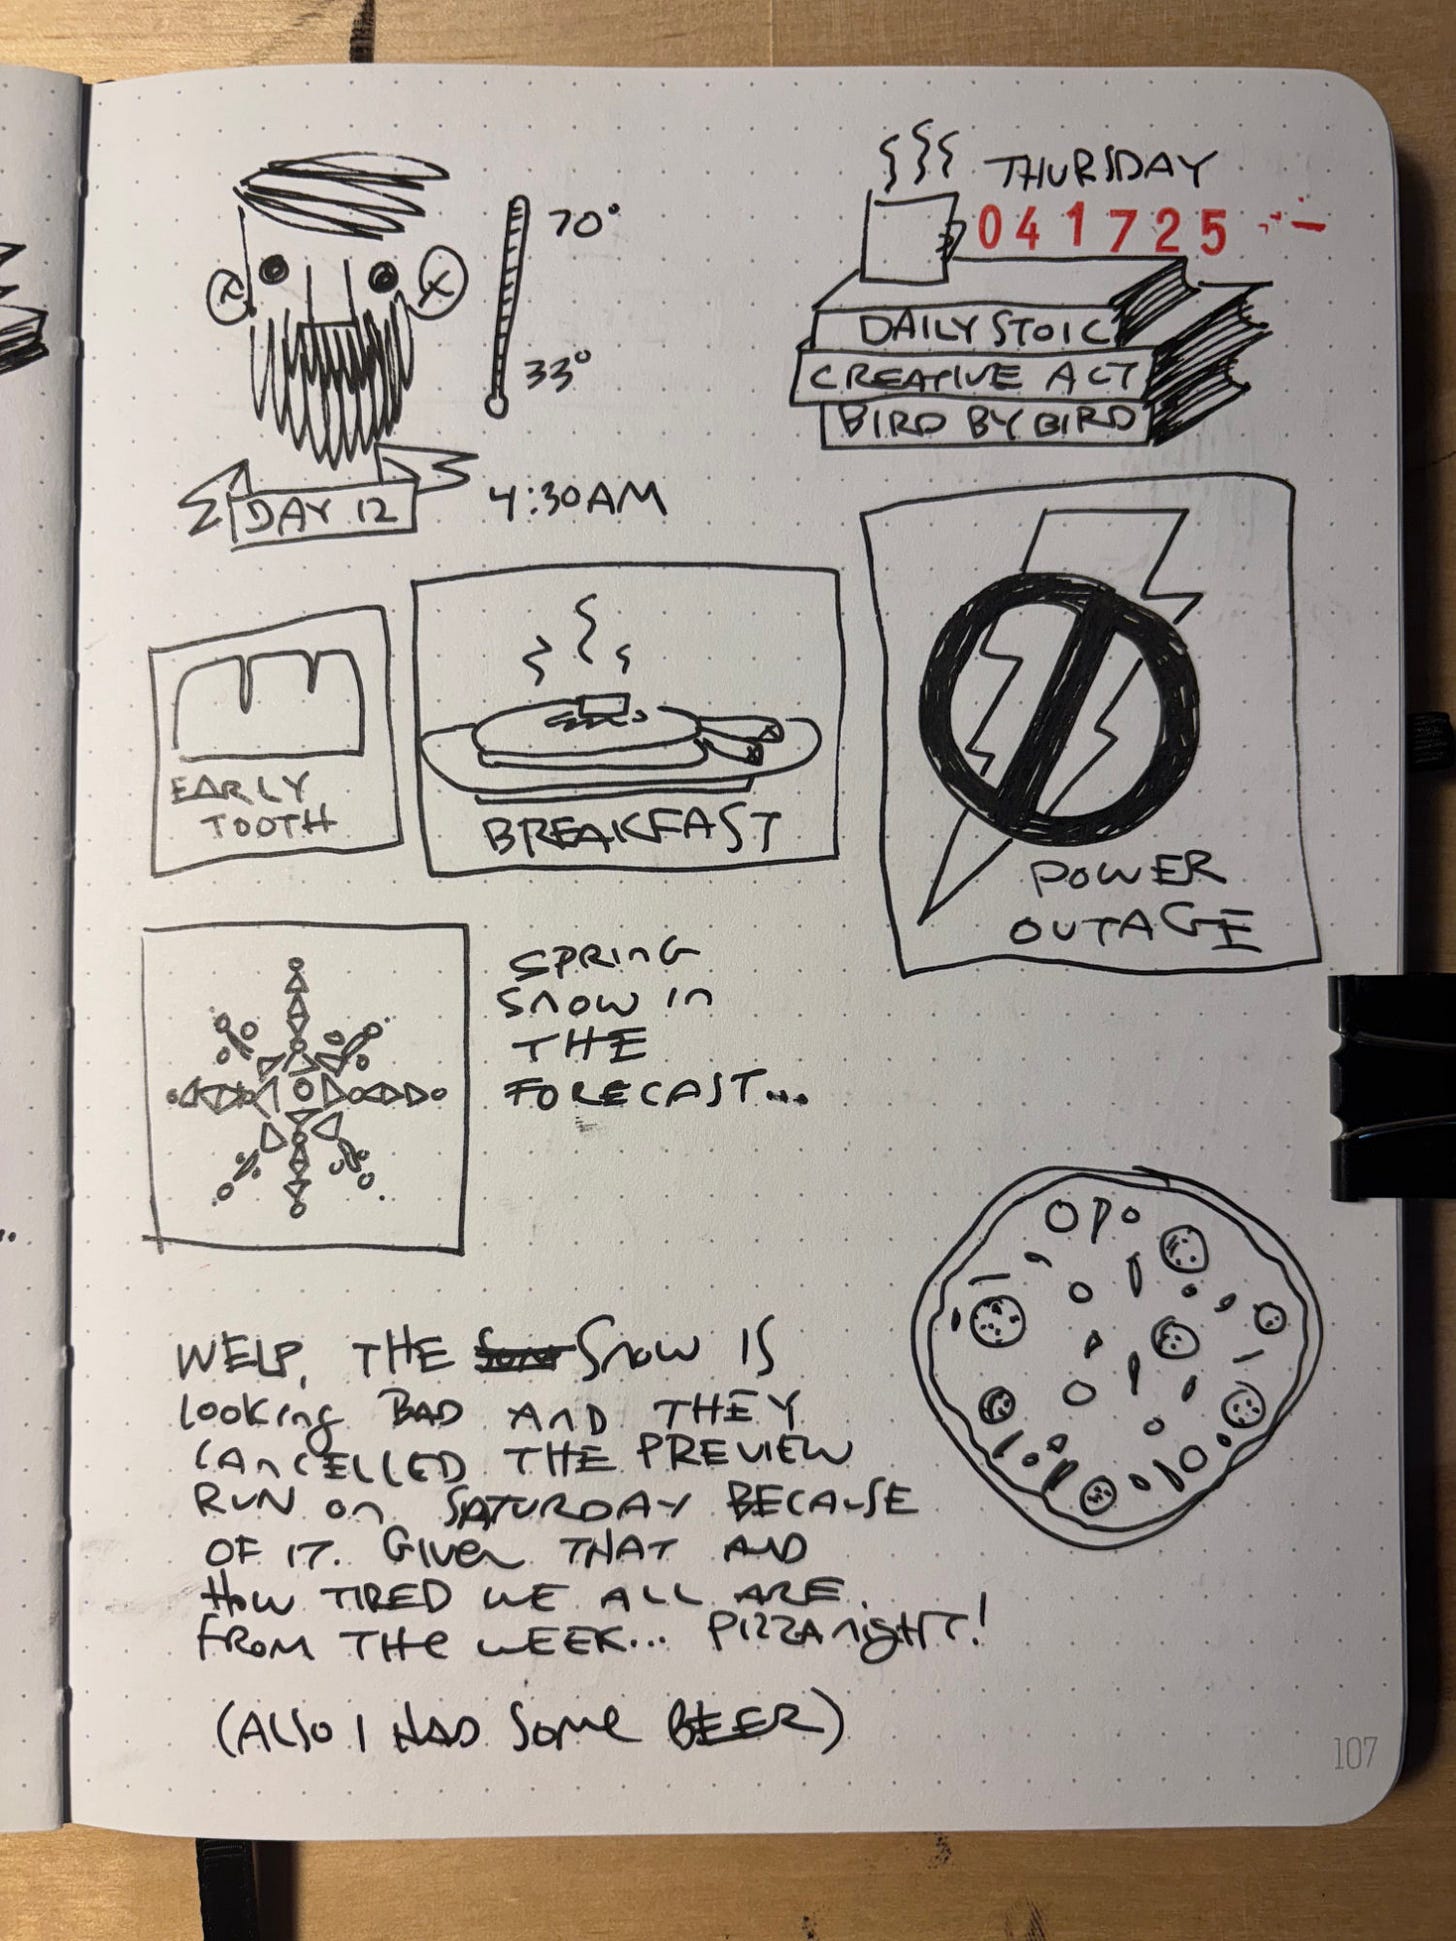 70°
33°
DAY 12
4:30AM
THURSDAY
041725
DAILY STOIC
CREATIVE ACT
BIRD BY BIRD
EARLY
TOOTH
BREAKFAST
POWER
OUTAGE
SPRING
SNOW IN
THE
FORECAST...
WELP, THE SNOW IS
LOOKING BAD AND THEY
CANCELLED THE PREVIEW
RUN ON SATURDAY BECAUSE
OF IT. GIVEN THAT AND
HOW TIRED WE ALL ARE
FROM THE WEEK... PIZZA NIGHT!
(ALSO I HAD SOME BEER)
107